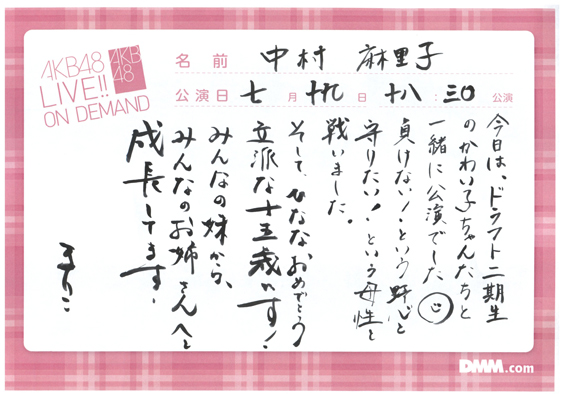 AKB48
LIVE!!
ON DEMAND
AKB
48
名前 中村 麻里子
公演日 七月 十九日 十八:三〇 公演
今日は、ドラフト二期生
のかわい子ちゃんたちと
一緒に公演でした
負けない!という野心と
守りたい!という母性と
戦いました。
そして、ひななおめでとう
立派な十五歳です!
みんなの妹から、
みんなのお姉さんへと
成長してます!
まりこ
DMM.com